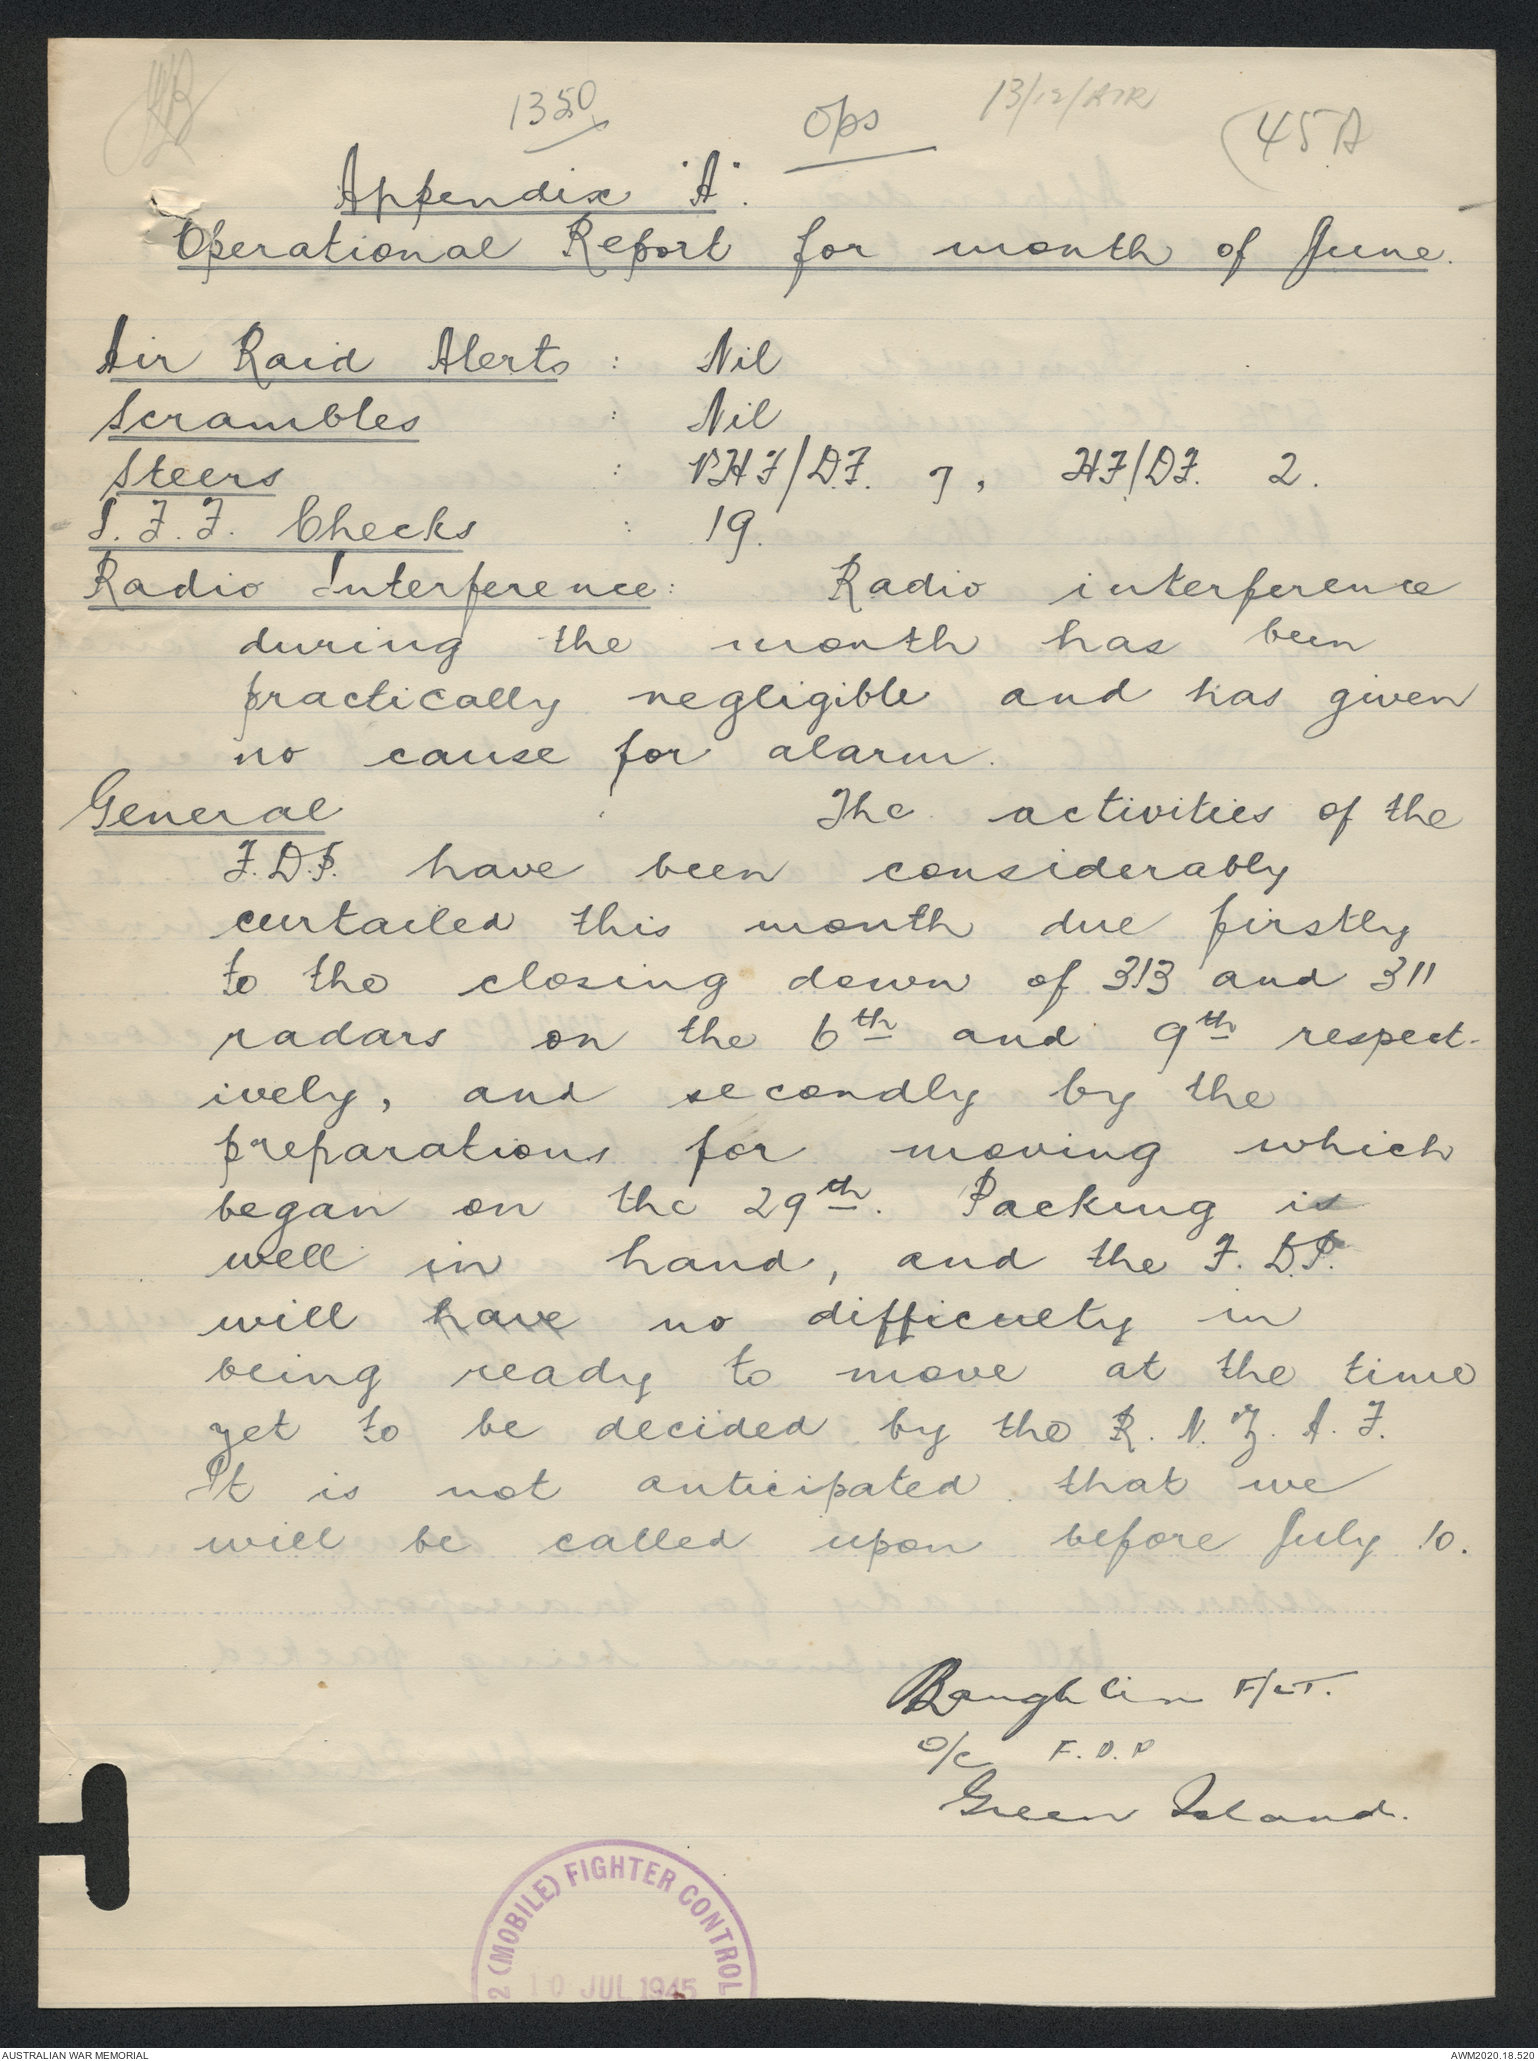 1350 Ops 13/12/AIR 45A
Appendix "A".
Operational Report for month of June.
Air Raid Alerts : Nil
Scrambles : Nil
Steers : VHF/D.F. 7, HF/DF. 2.
I.F.F. Checks : 19.
Radio Interference: Radio interference
during the month has been
practically negligible and has given
no cause for alarm.
General : The activities of the
F.D.P. have been considerably
curtailed this month due firstly
to the closing down of 313 and 311
radars on the 6th and 9th respect-
ively, and secondly by the
preparations for moving which
began on the 29th. Packing is
well in hand, and the F.D.P.
will have no difficulty in
being ready to move at the time
yet to be decided by the R.N.Z.A.F.
It is not anticipated that we
will be called upon before July 10.
F/LT.
O/C F.D.P
Green Island.
2 (MOBILE) FIGHTER CONTROL
10 JUL 1945
AUSTRALIAN WAR MEMORIAL AWM2020.18.520